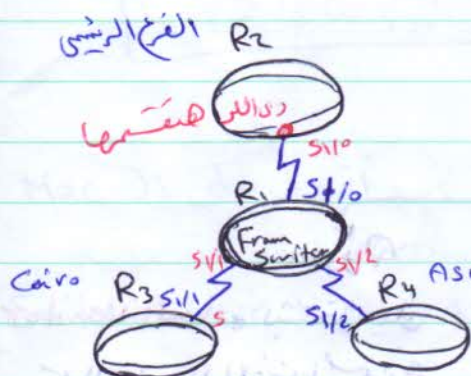 الفرع الرئيسى
R2
دى اللى هنقسمها
S1/0
R1 S1/0
Fram
Switch
S1/1 S1/2
Cairo R3 S1/1
S
R4 AS
S1/2